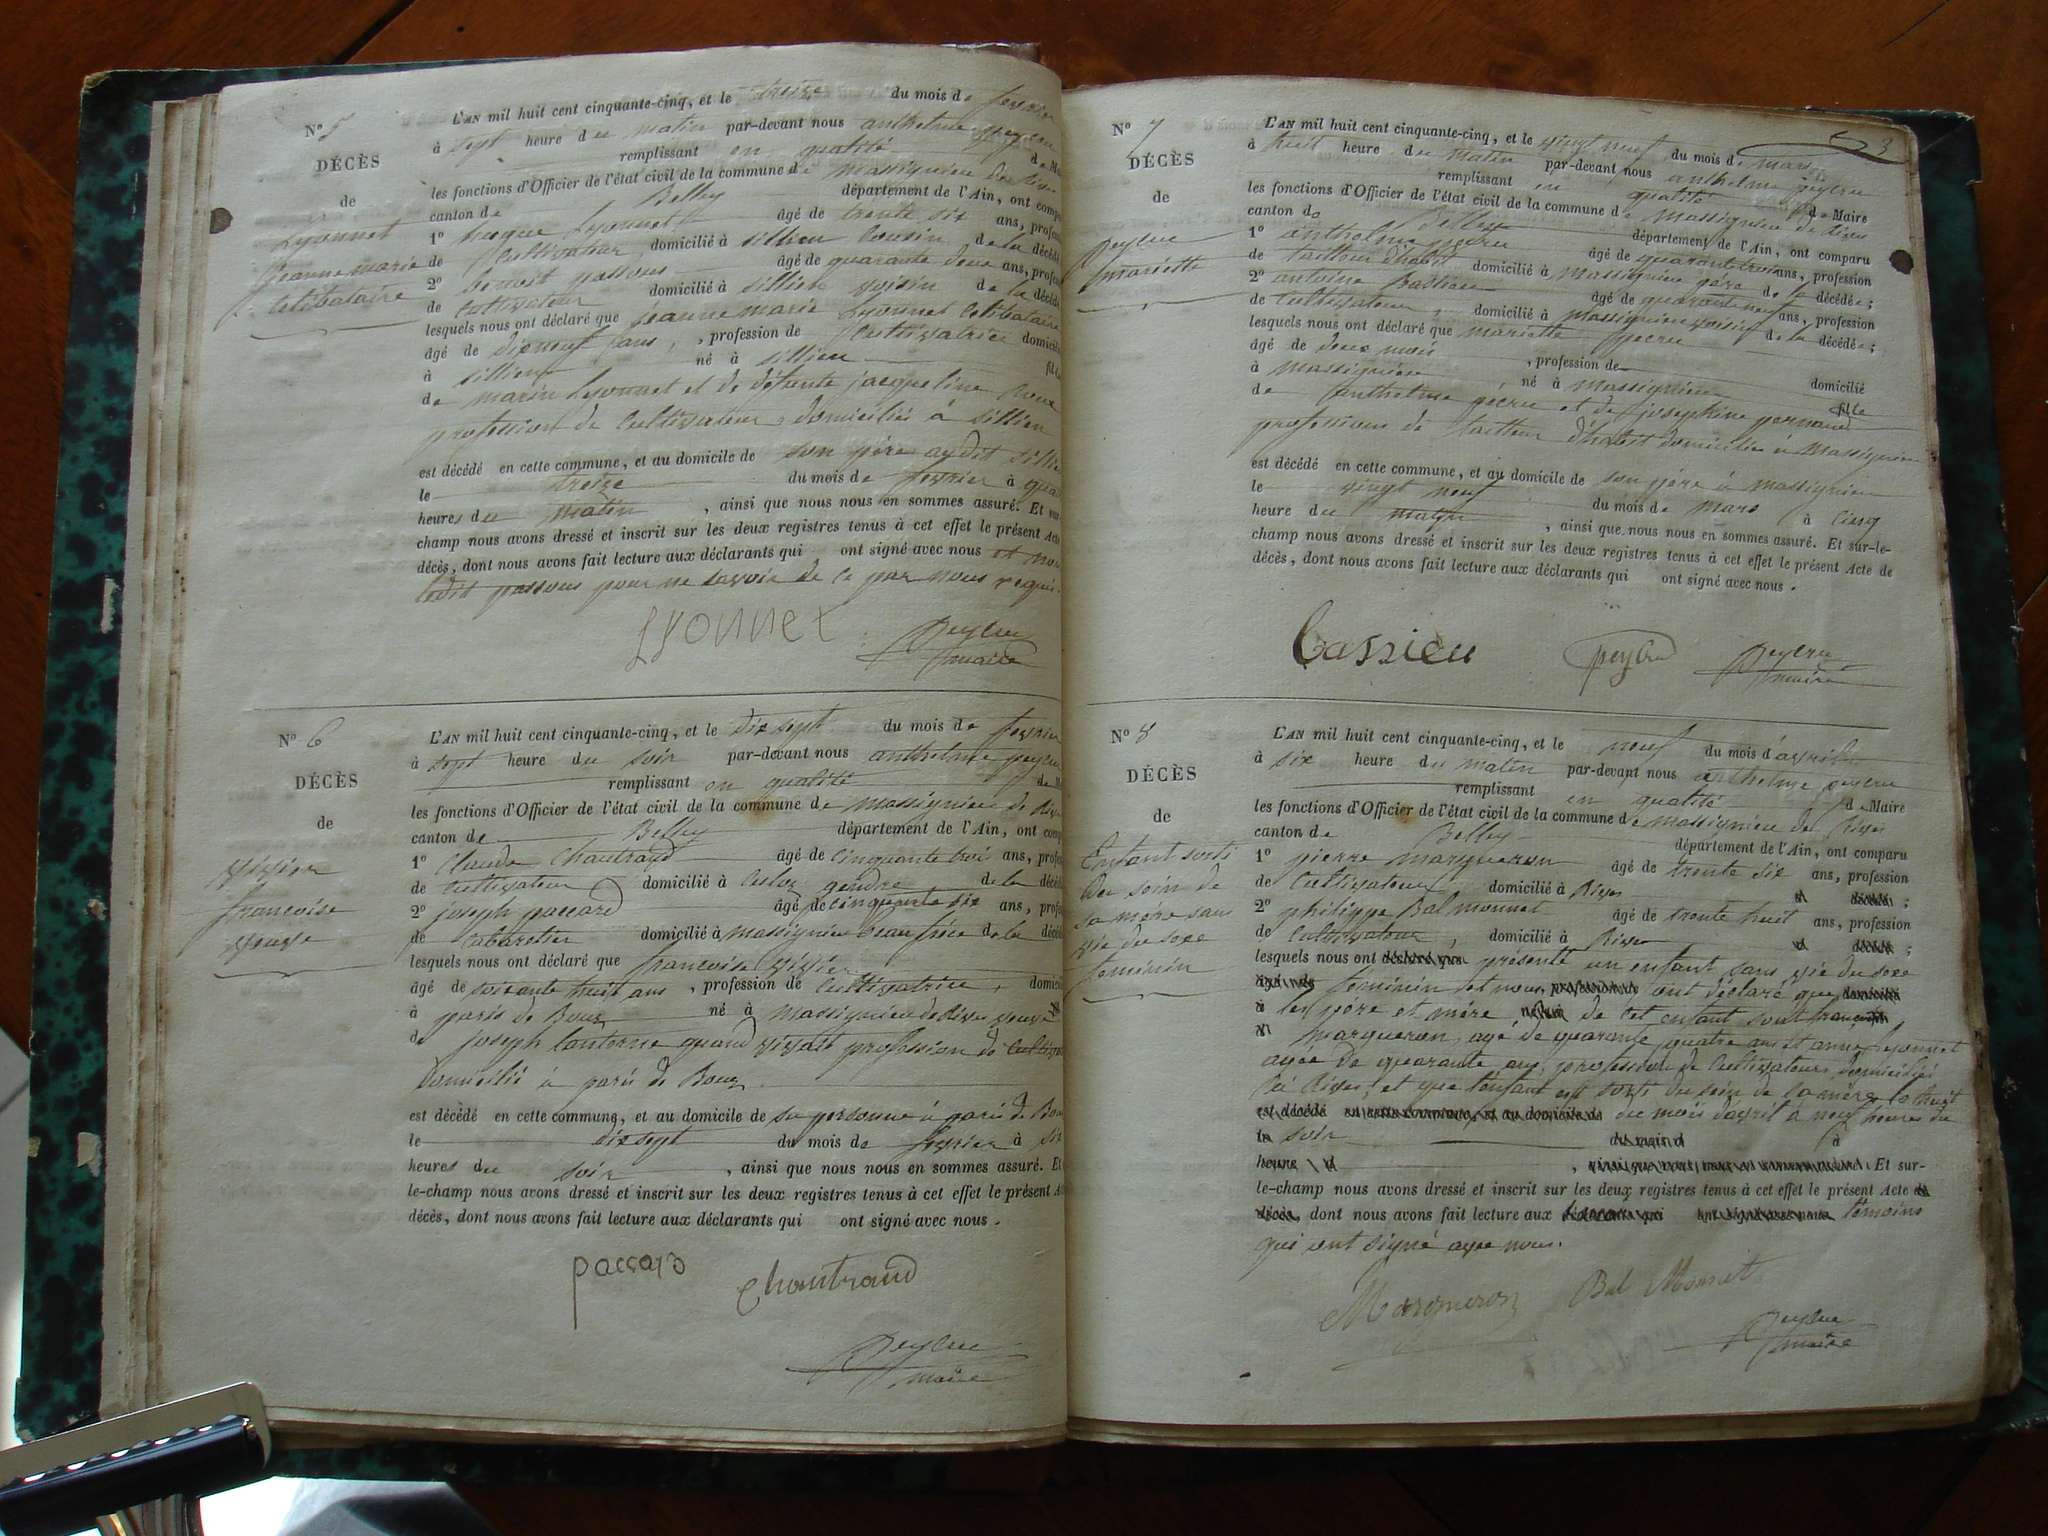 N° 5
DÉCÈS
de
Lyonnet
jeanne marie
Celibataire
L'AN mil huit cent cinquante-cinq, et le treize du mois de fevrier
à sept heure du matin par-devant nous anthelme peycru
remplissant en qualité de
les fonctions d'Officier de l'état civil de la commune de massignieu de Rives
canton de Belley département de l'Ain, ont
1° Lyonnet âgé de trente six ans,
de Cultivateur, domicilié à sillieu Cousin de la
2° benoit passous âgé de quarante deux ans,
de Cultivateur domicilié à sillieu voisin de la
lesquels nous ont déclaré que jeanne marie Lyonnet Celibataire
âgé de dix neuf ans, profession de Cultivatrice
à sillieu né à sillieu
de marin Lyonnet et de défunte jacqueline
profession de Cultivateur, domiciliés à sillieu
est décédé en cette commune, et au domicile de son père audit
le treize du mois de fevrier à
heures du matin, ainsi que nous nous en sommes assuré. Et
champ nous avons dressé et inscrit sur les deux registres tenus à cet effet le présent Acte
décès, dont nous avons fait lecture aux déclarants qui ont signé avec nous et non
ledit passous pour ne savoir de ce par nous requis.
Lyonnet
Peycru
maire
N° 6
DÉCÈS
de
vivier
francoise
veuve
L'AN mil huit cent cinquante-cinq, et le dix sept du mois de fevrier
à sept heure du soir par-devant nous anthelme peycru
remplissant en qualité de
les fonctions d'Officier de l'état civil de la commune de massignieu de Rives
canton de Belley département de l'Ain, ont
1° Claude Chautrand âgé de cinquante troi ans,
de Cultivateur domicilié à gendre de la
2° joseph paccard âgé de cinquante six ans,
de Cabaretier domicilié à massignieu beau frère de la
lesquels nous ont déclaré que francoise vivier
âgé de soixante huit ans, profession de Cultivatrice,
à paris de Bouz né à massignieu de Rives veuve
de joseph Lanterne quand vivait profession de
Domicilié à paris de Bouz
est décédé en cette commune, et au domicile de sa personne à paris de
le dix sept du mois de fevrier à six
heures du soir, ainsi que nous nous en sommes assuré. Et
le-champ nous avons dressé et inscrit sur les deux registres tenus à cet effet le présent
décès, dont nous avons fait lecture aux déclarants qui ont signé avec nous.
paccard Chautrand
Peycru
maire
3
N° 7
DÉCÈS
de
Peycru
mariette
L'AN mil huit cent cinquante-cinq, et le vingt neuf du mois de mars
à huit heure du matin par-devant nous anthelme peycru
remplissant en qualité de Maire
les fonctions d'Officier de l'état civil de la commune de massignieu de Rives
canton de Belley département de l'Ain, ont comparu
1° anthelme pecru âgé de quarante trois ans, profession
de tailleur d'habit domicilié à massignieu père de la décédée;
2° antoine Cassieu âgé de quarante neuf ans, profession
de Cultivateur, domicilié à massignieu voisin de la décédée;
lesquels nous ont déclaré que mariette pecru
âgé de deux mois, profession de domicilié
à massignieu, né à massignieu fille
de anthelme pecru et de josephine pernaud
professions de tailleur d'habit domiciliés à Massignieu
est décédé en cette commune, et au domicile de son père à massignieu
le vingt neuf du mois de mars à cinq
heure du matin, ainsi que nous nous en sommes assuré. Et sur-le-
champ nous avons dressé et inscrit sur les deux registres tenus à cet effet le présent Acte de
décès, dont nous avons fait lecture aux déclarants qui ont signé avec nous.
Cassieu peycru Peycru
maire
N° 8
DÉCÈS
de
Enfant sorti
du sein de
sa mère sans
vie du sexe
feminin
L'AN mil huit cent cinquante-cinq, et le neuf du mois d'avril
à six heure du matin par-devant nous anthelme peycru
remplissant en qualité de Maire
les fonctions d'Officier de l'état civil de la commune de massignieu de Rives
canton de Belley département de l'Ain, ont comparu
1° pierre margueron âgé de trente six ans, profession
de Cultivateur domicilié à Rives d décédé;
2° philippe Balmonnet âgé de trente huit ans, profession
de Cultivateur, domicilié à Rives d décédé;
lesquels nous ont déclaré que présenté un enfant sans vie du sexe
âgé de feminin et nous profession ont déclaré que domicilié
à les père et mère de cet enfant sont françois
margueron, agé de quarante quatre ans et anne Lyonnet
agée de quarante ans, profession de Cultivateurs, domiciliés
à Rives, et que l'enfant est sorti du sein de la mère le huit
est décédé en cette commune, et au domicile de du mois d'avril à neuf heures du
le soir du mois d à
heure d, ainsi que nous nous en sommes assuré. Et sur-
le-champ nous avons dressé et inscrit sur les deux registres tenus à cet effet le présent Acte de
décès, dont nous avons fait lecture aux déclarants qui ont signé avec nous témoins
qui ont signé avec nous.
Margueron Bal Monnet
Peycru
maire